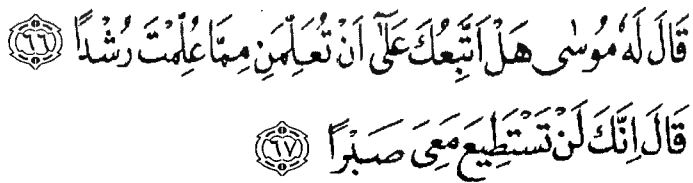 قَالَ لَهٗ مُوْسٰى هَلْ اَتَّبِعُكَ عَلٰٓى اَنْ تُعَلِّمَنِ مِمَّا عُلِّمْتَ رُشْدًا ﴿٦٦﴾
قَالَ اِنَّكَ لَنْ تَسْتَطِيْعَ مَعِيَ صَبْرًا ﴿٦٧﴾